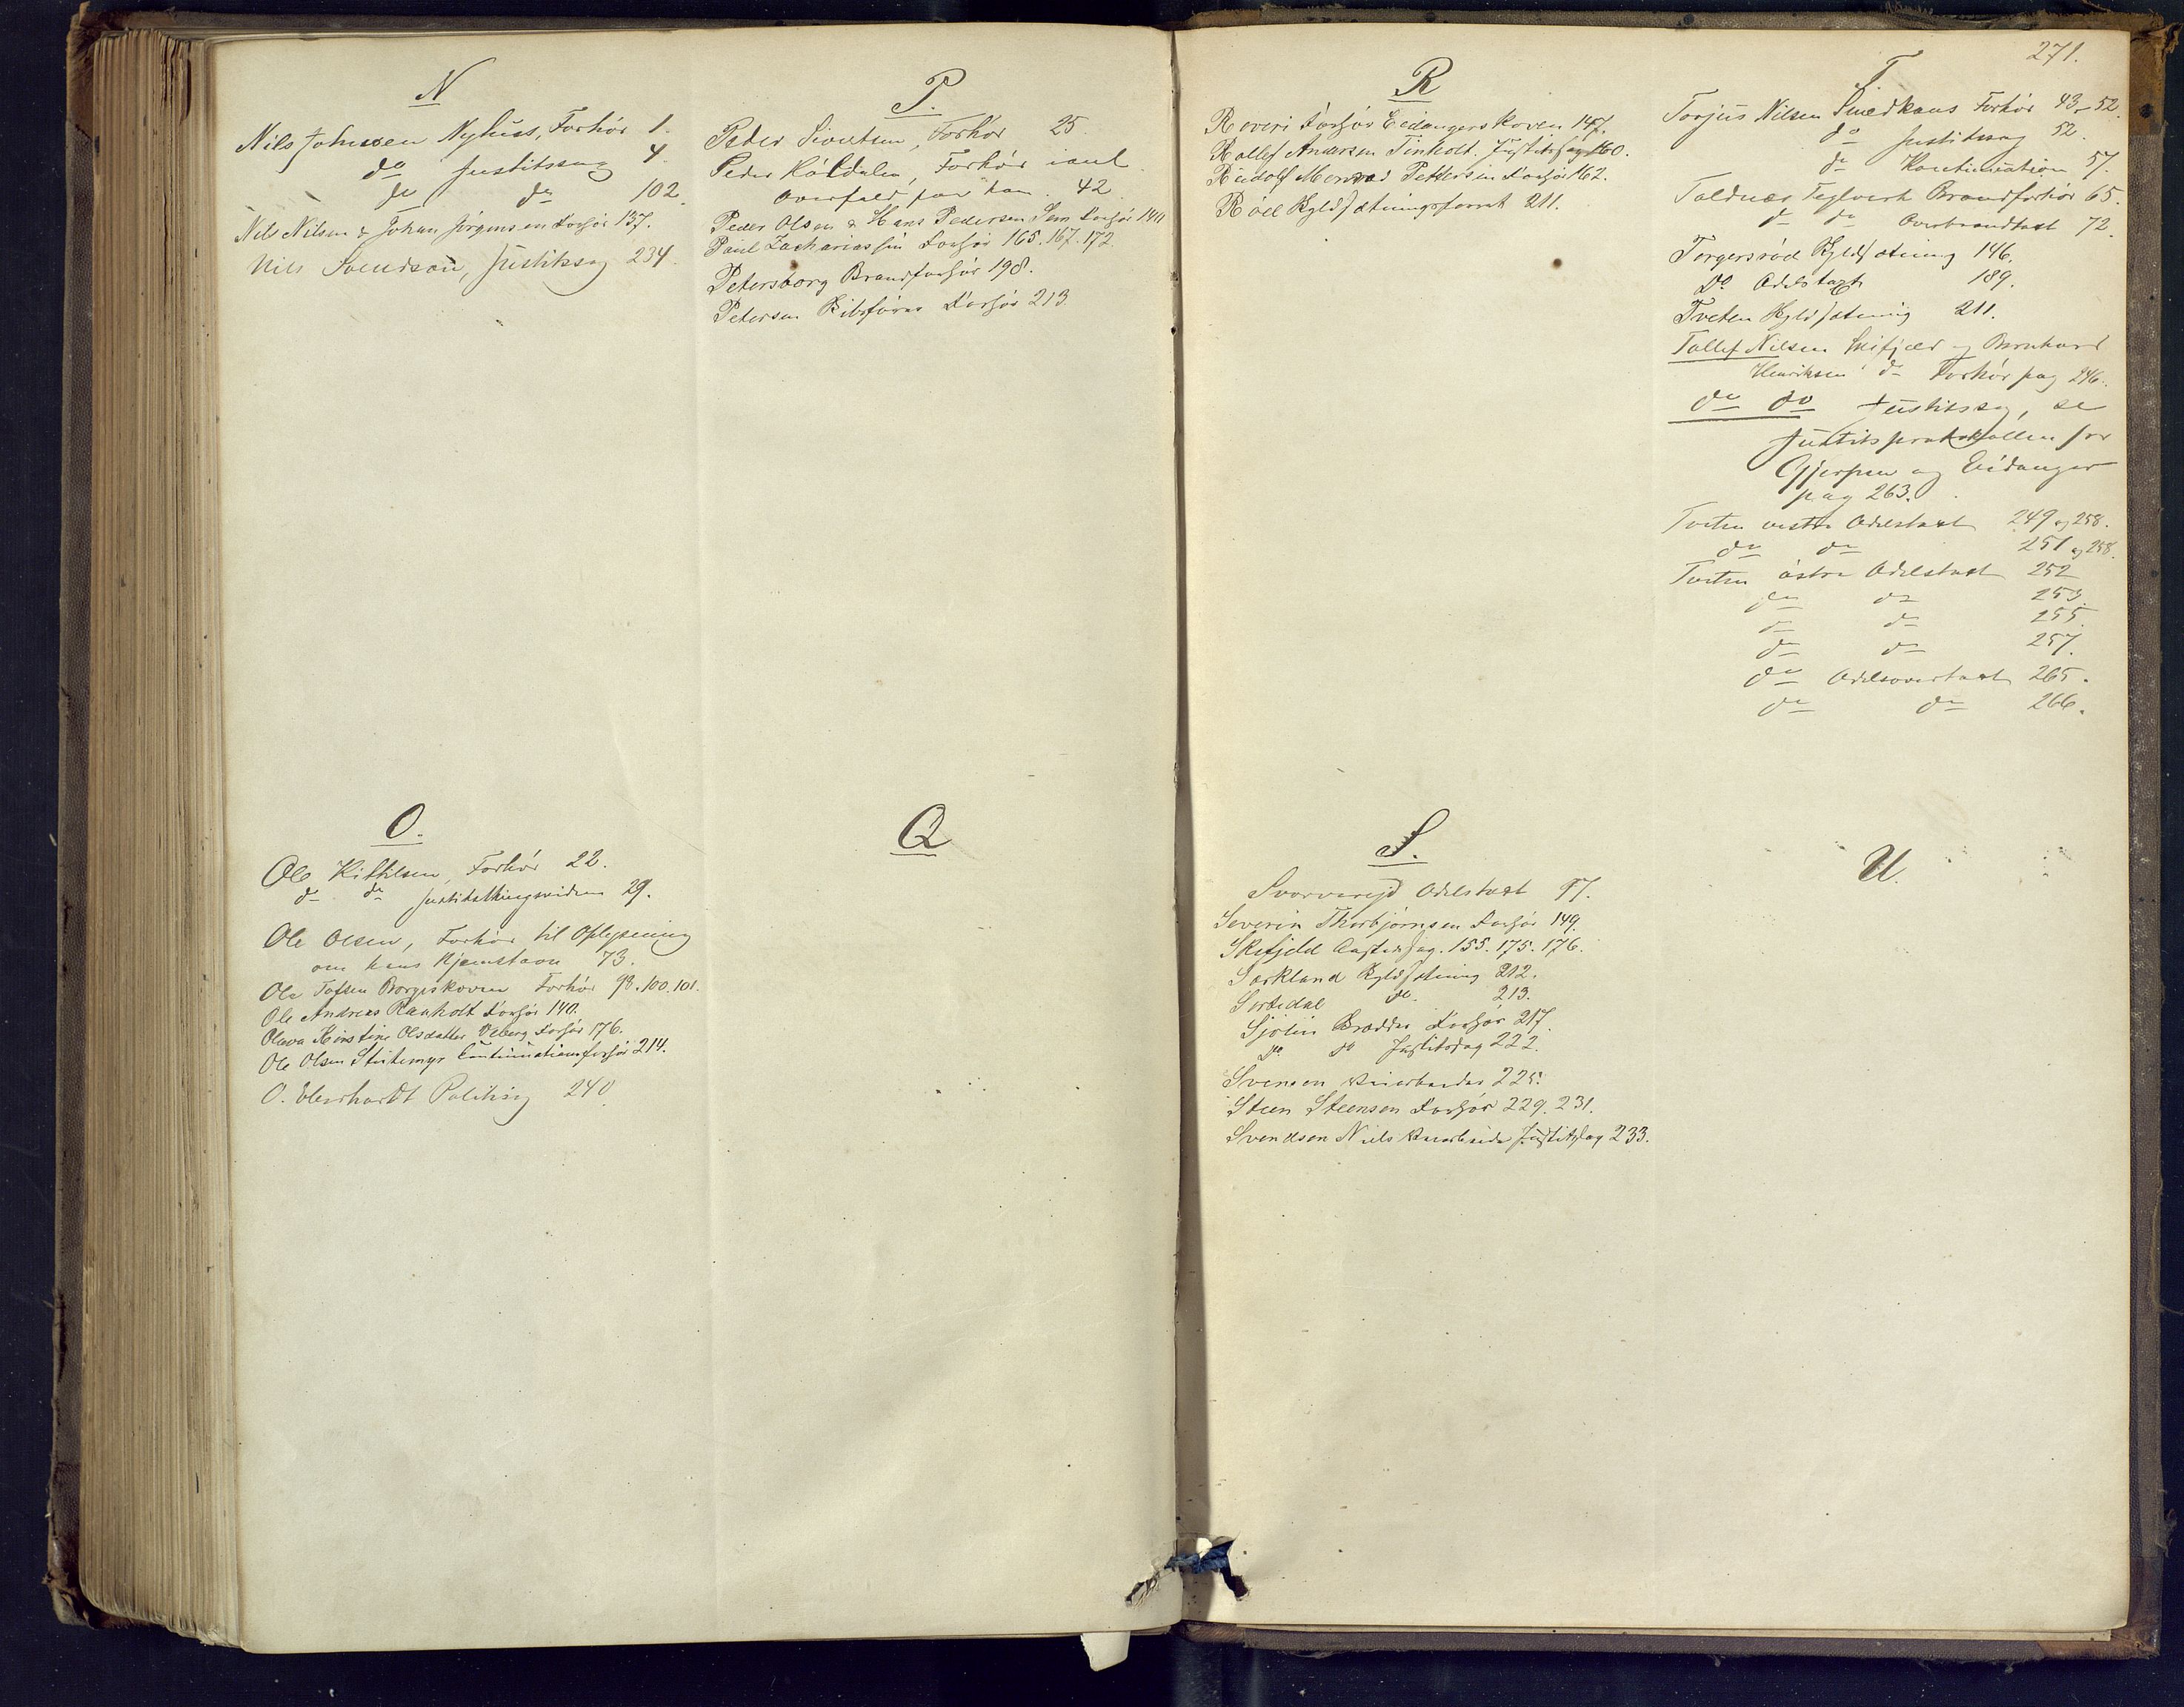 N
Nils Johnsen Nyhuus, Forhör 1.
do Justitssag 4.
do do 102.
Nils Nilsen & Johan Jörgensen Forhör 137.
Nils Svendsen, Justitssag 234.
O.
Ole Kittilsen, Forhör 22.
do do Justitsthingsvidne 29.
Ole Olsen, Forhör til Oplysning
om hans Hjemstavn 73.
Ole Tofsen Borgeskoven Forhör 98. 100. 101.
Ole Andreas Ranholt Forhör 140.
Olava Kirstine Olsdatter Viberg Forhör 176.
Ole Olsen Stutemyr Continuationsforhör 214.
O. Eberhardt Politisag 240
P.
Peder Sivertsen, Forhör 25.
Peder Kaasdalen, Forhör i anl
Overfald paa ham. 42
Peder Olsen & Hans Pedersen Sem Forhör 140
Paul Zachariassen Forhör 165. 167. 172.
Petersborg Brandforhör 198.
Petersen Forhör 213.
Q
271.
R
Röveri Forhör Eidangerskoven 147.
Rollef Andersen Tinholt. Justitssag 160.
Rudolf Menrad Pettersen Forhör 162.
Röd Skyldsætningsforret 211.
S.
Svorvareid Odelstaxt 97.
Severin Thorbjörnsen Forhör 149.
Skifjeld Aastedssag. 155. 175. 176.
Sorkland Skyldsætning 212.
Sortedal do. 213.
Sjölin Brödder Forhör 217.
do do Justitssag 222.
Svensen 225.
Steen Steensen Forhör 229. 231.
Svendsen Niels Justitssag 233.
T
Torjus Nilsen Smedkaas Forhör 43-52.
do Justitssag 52.
do Kontinuation 57.
Toldnæs Teglverk Brandforhör 65.
do do Overbrandtaxt 72.
Torgersröd Skyldsætning 146.
Do Odelstaxt 189.
Tveten Skyldsætning 211.
Tollef Nilsen Skifjeld og Bernhard
Henriksen do Forhör pag 246.
do do Justitssag, se
Justitsprotokollen for
Gjerpen og Eidanger
pag 263.
Tveten vestre Odelstaxt 249 og 258.
do do 251 og 258.
Tveten östre Odelstaxt 252
do do 253.
do do 255.
do do 257.
do Odelsovertaxt 265.
do do 266.
U.